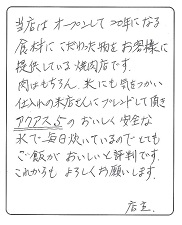 当店は オープンして 20年になる
食材に こだわった物を お客様に
提供している 焼肉店です.
肉はもちろん、米にも 気をつかい
仕入れの米店さんに ブレンドして頂き
アクアス5の おいしく 安全な
水で 毎日 炊いているのでとても
ご飯が おいしいと評判です.
これからも よろしくお願いします.
店主.